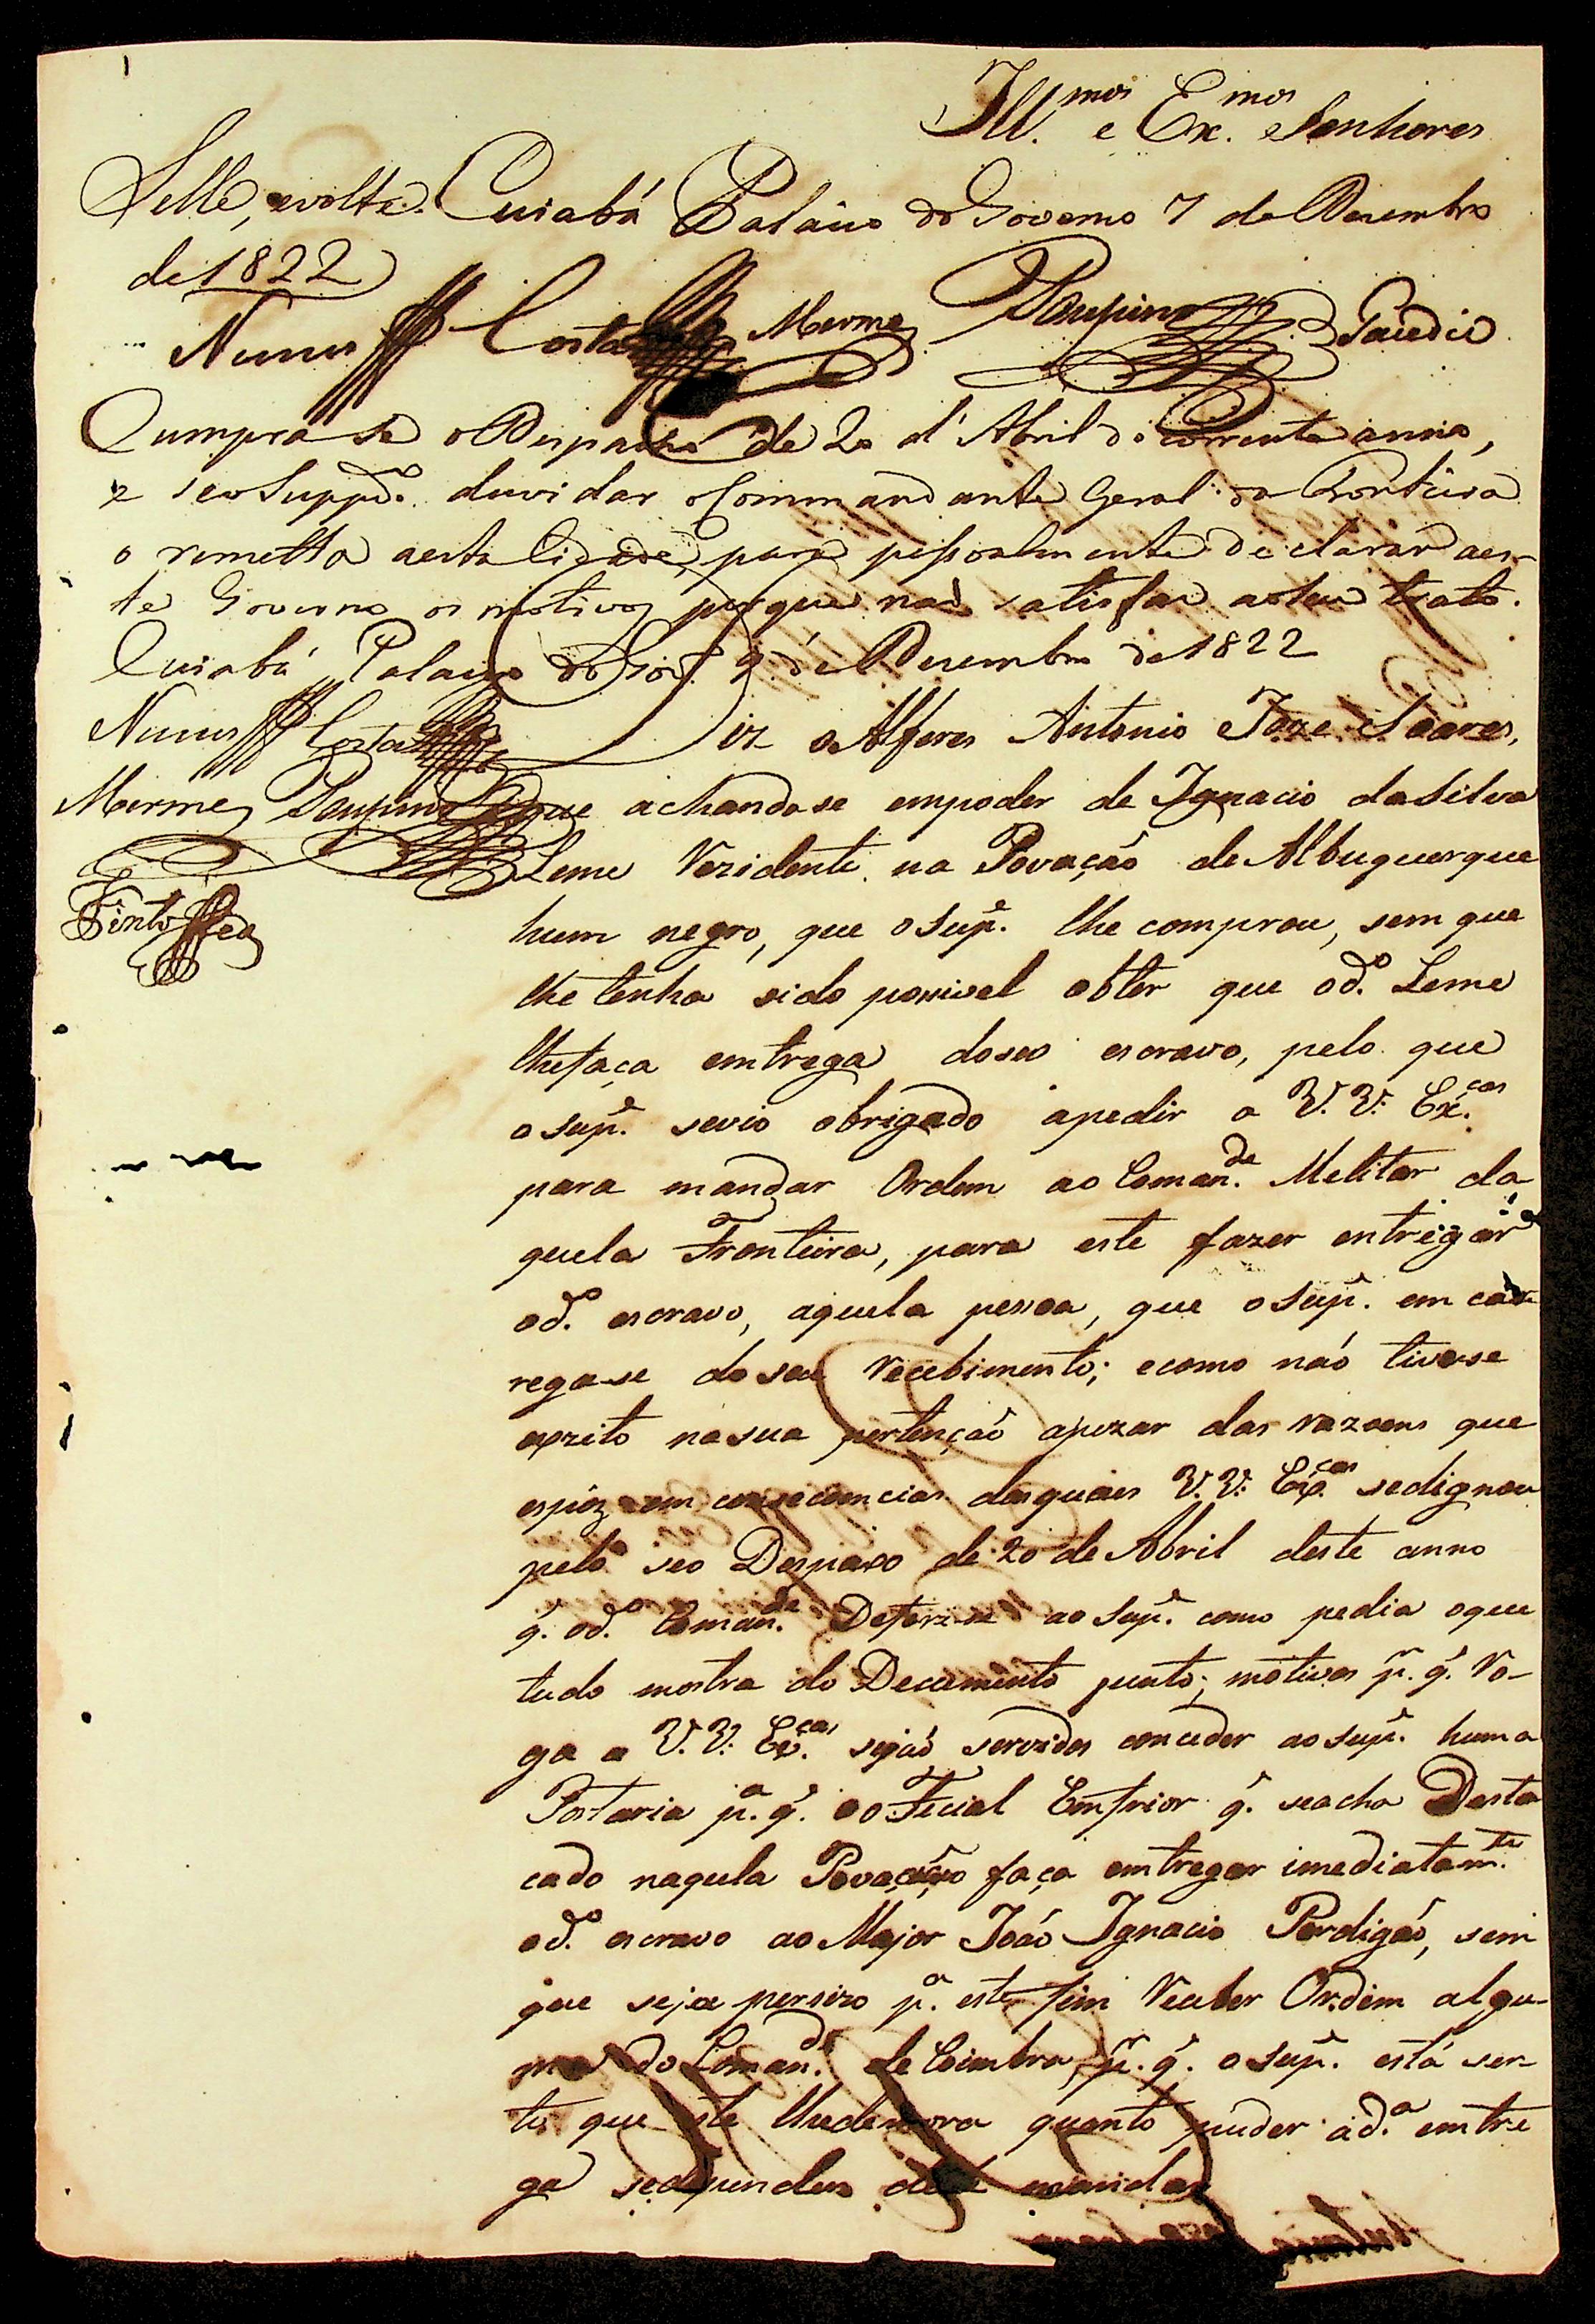 Ill.mos e Ex.mos Senhores
Selle, evolte. Cuiabá Palacio do Governo 7 de Dezembro
de 1822
Nunes Costa Merme Jaudie
Cumpra se o Despacho de 20 d'Abril do corrente anno,
e seo Supp.do duvidar o Commandante Geral da Fronteira
o remetta aesta Cidade, para pessoalmente declarar aes-
te Governo os motivos porque naõ satisfaz aoseu trato.
Cuiabá Palacio do Gov.o 9 de Dezembro de 1822
Nunes Costa
Merme
Pinto
Diz o Alferes Antonio Joze Soares,
que achandose empoder de Ignacio daSilva
Leme Rezidente na Povação de Albuquerque
hum negro, que o Sup.e lhe comprou, sem que
lhe tenha sido possivel obter que o d.o Leme
lhefaça emtrega doseo escravo, pelo que
o Sup.e sevio obrigado apedir a V. V. Ex.cas
para mandar Ordem ao Coman.de Melitar da
quela Fronteira, para este fazer entregar
o d.o escravo, aquela pessoa, que o Sup.e em car
regase do seu Recebimento; ecomo não tivese
expito nasua pertenção apezar das razoens que
espoz em consecuencias dasquaes V. V. Ex.cas sedignou
pelo seo Despaxo de 20 de Abril deste anno
q. o d.o Coman.de Deferise ao Sup.e como pedia oque
tudo mostra do Decumento junto; motivos p.r q. Ro-
ga a V. V. Ex.cas sejaõ servidos conceder ao Sup.e huma
Portaria p.a q. o oFecial Emfrior q. seacha Desta
cado naquela Povação faça emtregar imediatam.te
o d.o escravo ao Major João Ignacio Perdigão, sem
que seja persizo p.a este fim Receber Ordem algu-
ma do Coman.de de Coimbra, p.r q. o Sup.e está ser-
to que este lhedemora quanto puder a d.a emtre
ga sedepender dele mandar